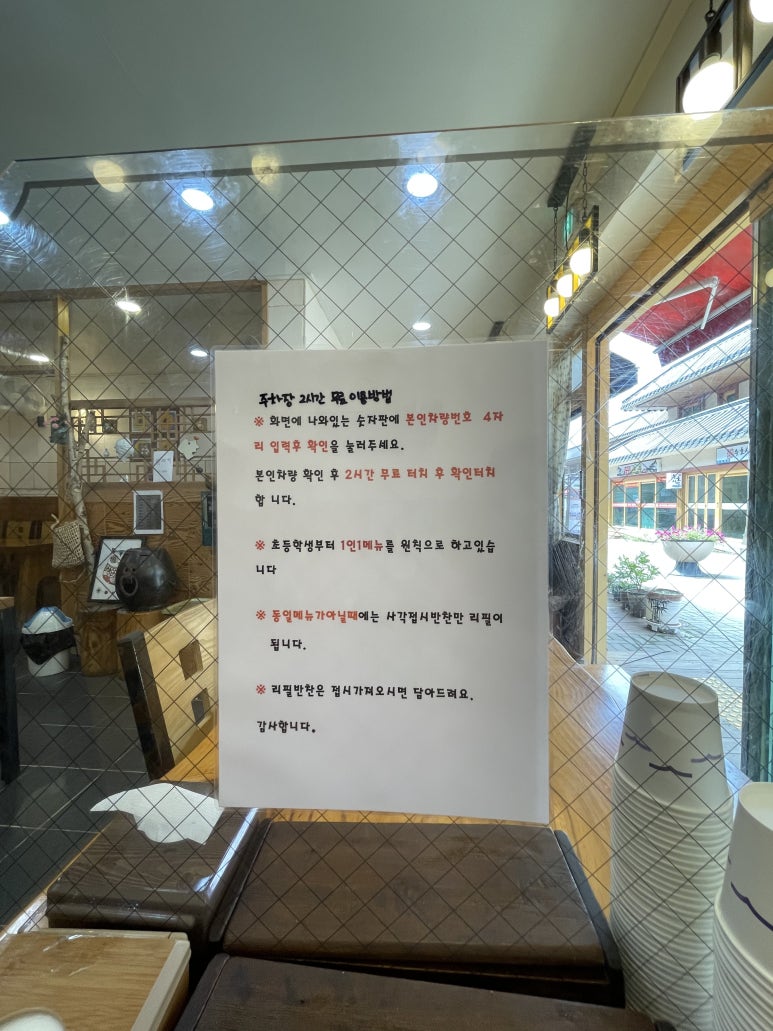 주차장 2시간 무료 이용방법
※ 화면에 나와있는 숫자판에 본인차량번호 4자
리 입력후 확인을 눌러주세요.
본인차량 확인 후 2시간 무료 터치 후 확인터치
합 니다.
※ 초등학생부터 1인1메뉴를 원칙으로 하고있습
니다
※ 동일메뉴가아닐때에는 사각접시반찬만 리필이
됩니다.
※ 리필반찬은 접시가져오시면 담아드려요.
감사합니다.